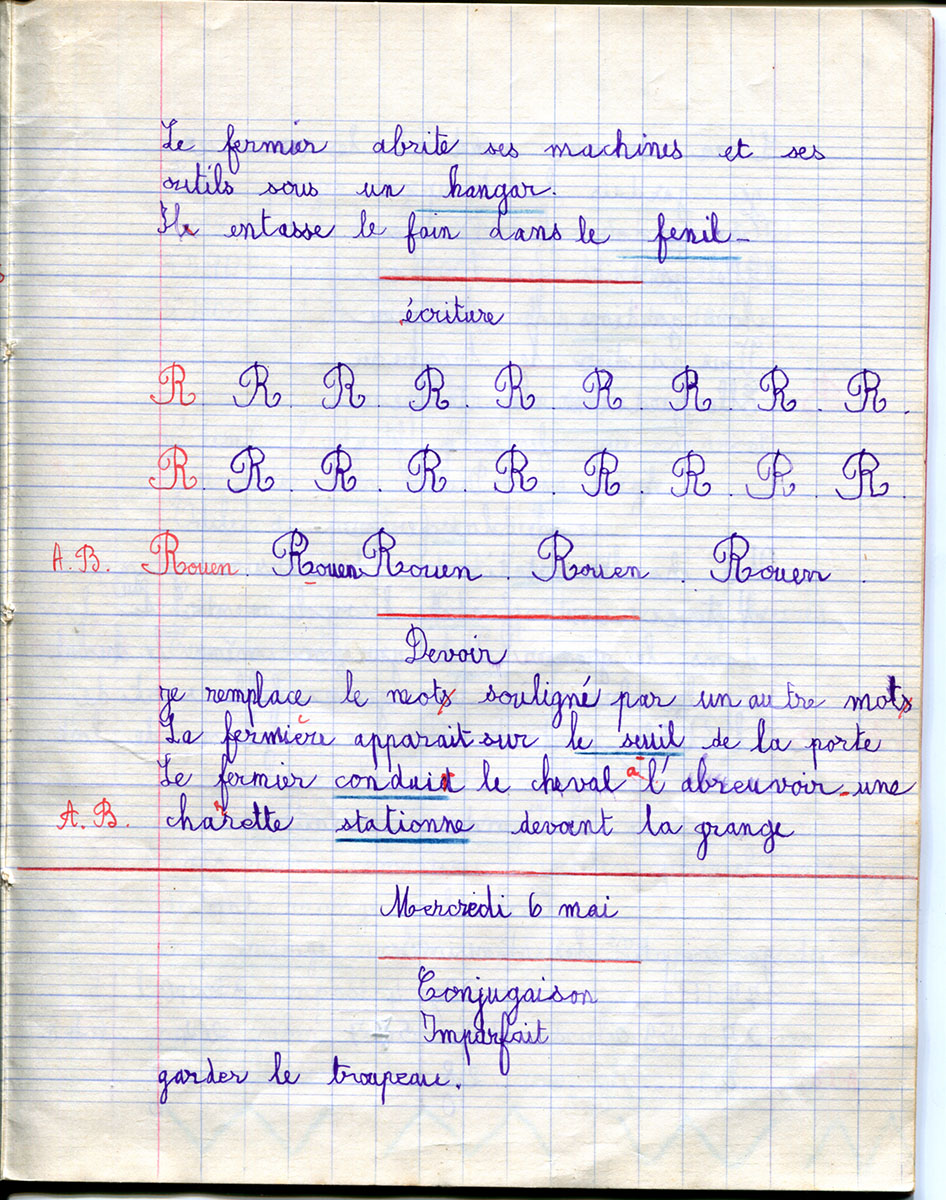 Le fermier abrite ses machines et ses
outils sous un hangar.
Il entasse le foin dans le fenil-
écriture
R R R R R R R R R.
R R. R. R. R. R. R. R. R.
A.B. Rouen. Rouen Rouen. Rouen. Rouen.
Devoir
je remplace le mots souligné par un autre mots
La fermière apparait sur le seuil de la porte
Le fermier conduit le cheval à l'abreuvoir-une
A.B. charette stationne devant la grange
Mercredi 6 mai
Conjugaison
Imparfait
garder le troupeau.